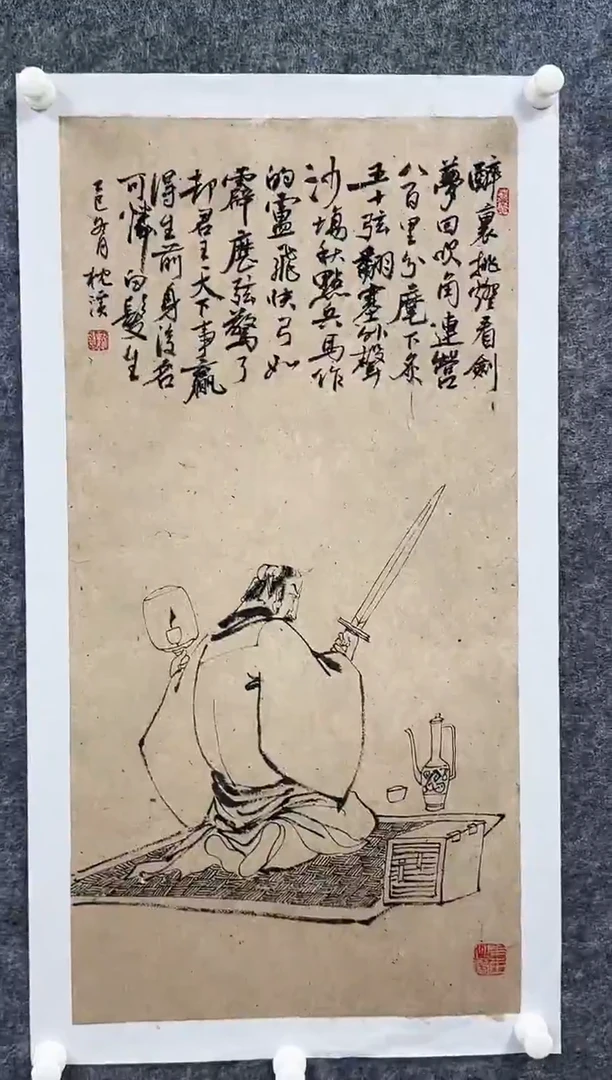 醉裏挑燈看劍
夢回吹角連營
八百里分麾下炙
五十弦翻塞外聲
沙場秋點兵馬作
的盧飛快弓如
霹靂弦驚了
却君王天下事贏
得生前身後名
可憐白髮生
乙巳冬月枕溪